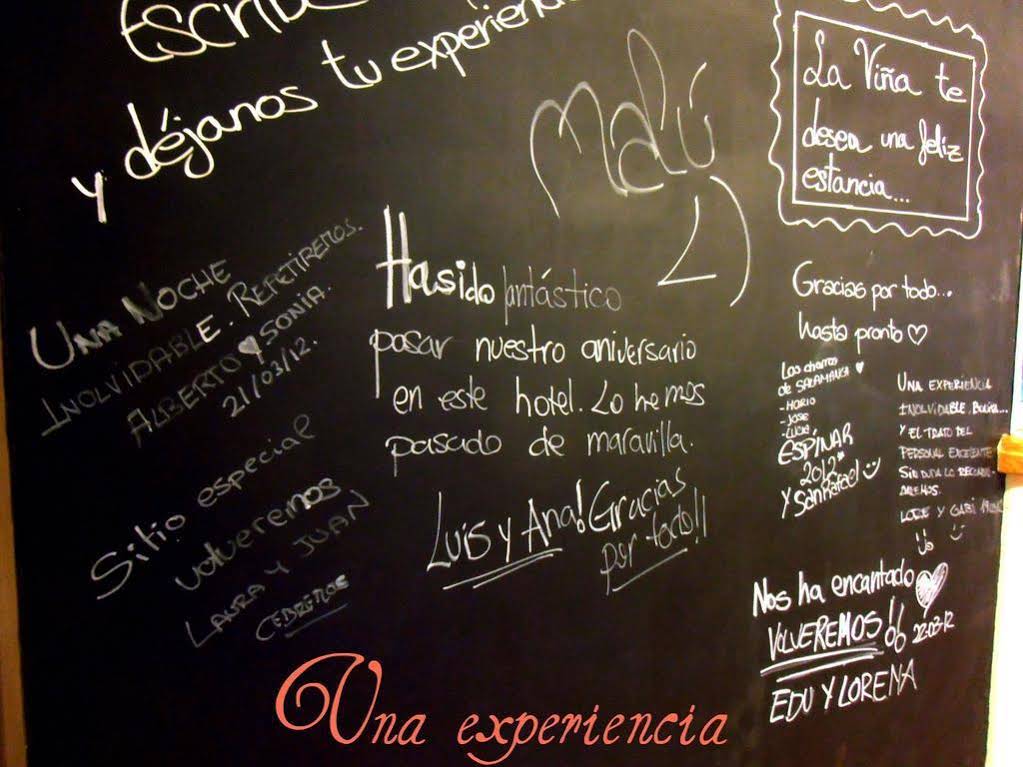 y déjanos tu experien
Malú
La Viña te
desea una feliz
estancia...
UNA NOCHE
INOLVIDABLE. REPETIREMOS.
ALBERTO Y SONIA.
21/03/12.
Ha sido fantástico
pasar nuestro aniversario
en este hotel. Lo hemos
pasado de maravilla.
Luis y Ana! Gracias
por todo!!
Sitio especial
volveremos
LAURA Y JUAN
CEBREROS
Gracias por todo...
hasta pronto ♡
Los charros
de SALAMANCA ♥
- MARIO
- JOSE
- LUCIA
ESPINAR
2012*
Y San Rafael
UNA EXPERIENCIA
INOLVIDABLE.
Y EL TRATO DEL
PERSONAL EXCELENTE
SIN DUDA LO RECOMEN-
DAREMOS.
LORE Y GABI
Nos ha encantado
VOLVEREMOS!! 22-03-12
EDU Y LORENA
Una experiencia